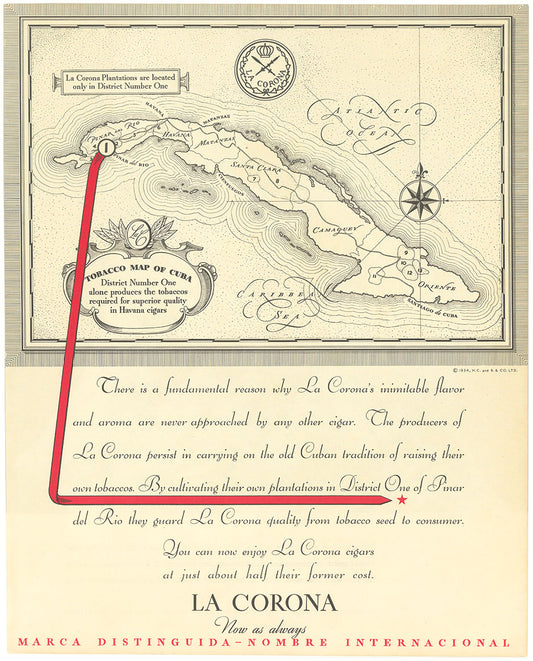 LA CORONA
La Corona Plantations are located
only in District Number One
ATLANTIC
OCEAN
HAVANA
MATANZAS
PINAR DEL RIO
HAVANA
MATANZAS
1
PINAR del RIO
SANTA CLARA
CIENFUEGOS
7
8
CAMAGUEY
LC
TOBACCO MAP OF CUBA
District Number One
alone produces the tobaccos
required for superior quality
in Havana cigars
9
10
11
12
13
ORIENTE
CARIBBEAN
SEA
SANTIAGO de CUBA
© 1934, H.C. and B. & CO. LTD.
There is a fundamental reason why La Corona's inimitable flavor
and aroma are never approached by any other cigar. The producers of
La Corona persist in carrying on the old Cuban tradition of raising their
own tobaccos. By cultivating their own plantations in District One of Pinar
del Rio they guard La Corona quality from tobacco seed to consumer.
You can now enjoy La Corona cigars
at just about half their former cost.
LA CORONA
Now as always
MARCA DISTINGUIDA–NOMBRE INTERNACIONAL